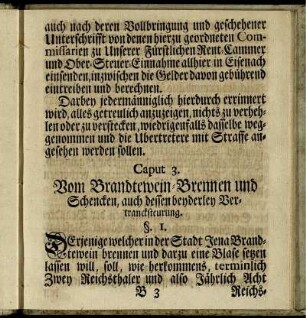 auch nach deren Vollbringung und geschehener
Unterschrifft von denen hierzu geordneten Com-
missarien zu Unserer Fürstlichen Rent-Cammer
und Ober-Steuer-Einnahme allhier in Eisenach
einsenden, inzwischen die Gelder davon gebührend
eintreiben und berechnen.
Darbey jedermänniglich hierdurch errinnert
wird, alles getreulich anzuzeigen, nichts zu verheh-
len oder zu verstecken, wiedrigenfalls dasselbe weg-
genommen und die Ubertretere mit Straffe an-
gesehen werden sollen.
Caput 3.
Vom Brandtewein-Brennen und
Schencken, auch dessen beyderley Ver-
trancksteurung.
§. 1.
DErjenige welcher in der Stadt Jena Brand-
tewein brennen und darzu eine Blase setzen
lassen will, soll, wie herkommens, terminlich
Zwey Reichsthaler und also Jährlich Acht
B 3 Reichs-